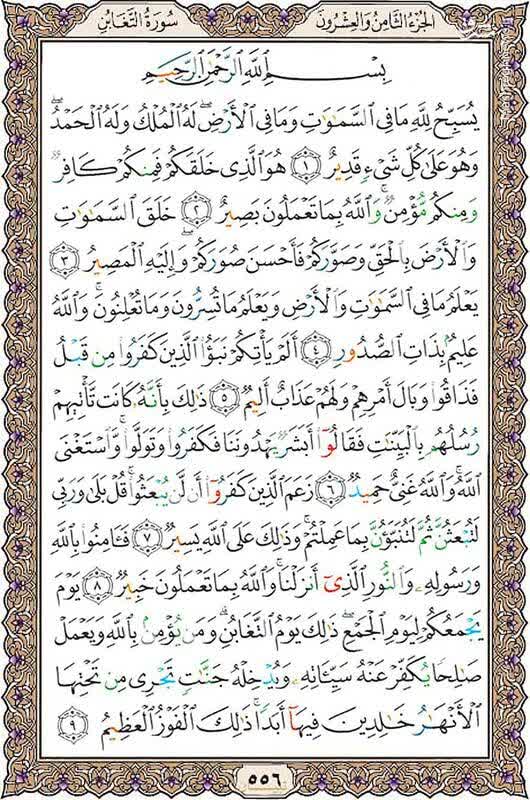 الجزء الثامن والعشرون
سورة التغابن
بِسْمِ ٱللَّهِ ٱلرَّحْمَٰنِ ٱلرَّحِيمِ
يُسَبِّحُ لِلَّهِ مَا فِى ٱلسَّمَٰوَٰتِ وَمَا فِى ٱلْأَرْضِ ۖ لَهُ ٱلْمُلْكُ وَلَهُ ٱلْحَمْدُ ۖ
وَهُوَ عَلَىٰ كُلِّ شَىْءٍ قَدِيرٌ ﴿١﴾ هُوَ ٱلَّذِى خَلَقَكُمْ فَمِنكُمْ كَافِرٌ
وَمِنكُم مُّؤْمِنٌ ۚ وَٱللَّهُ بِمَا تَعْمَلُونَ بَصِيرٌ ﴿٢﴾ خَلَقَ ٱلسَّمَٰوَٰتِ
وَٱلْأَرْضَ بِٱلْحَقِّ وَصَوَّرَكُمْ فَأَحْسَنَ صُوَرَكُمْ ۖ وَإِلَيْهِ ٱلْمَصِيرُ ﴿٣﴾
يَعْلَمُ مَا فِى ٱلسَّمَٰوَٰتِ وَٱلْأَرْضِ وَيَعْلَمُ مَا تُسِرُّونَ وَمَا تُعْلِنُونَ ۚ وَٱللَّهُ
عَلِيمٌۢ بِذَاتِ ٱلصُّدُورِ ﴿٤﴾ أَلَمْ يَأْتِكُمْ نَبَؤُا۟ ٱلَّذِينَ كَفَرُوا۟ مِن قَبْلُ
فَذَاقُوا۟ وَبَالَ أَمْرِهِمْ وَلَهُمْ عَذَابٌ أَلِيمٌ ﴿٥﴾ ذَٰلِكَ بِأَنَّهُۥ كَانَت تَّأْتِيهِمْ
رُسُلُهُم بِٱلْبَيِّنَٰتِ فَقَالُوٓا۟ أَبَشَرٌ يَهْدُونَنَا فَكَفَرُوا۟ وَتَوَلَّوا۟ ۚ وَّٱسْتَغْنَى
ٱللَّهُ ۚ وَٱللَّهُ غَنِىٌّ حَمِيدٌ ﴿٦﴾ زَعَمَ ٱلَّذِينَ كَفَرُوٓا۟ أَن لَّن يُبْعَثُوا۟ ۚ قُلْ بَلَىٰ وَرَبِّى
لَتُبْعَثُنَّ ثُمَّ لَتُنَبَّؤُنَّ بِمَا عَمِلْتُمْ ۚ وَذَٰلِكَ عَلَى ٱللَّهِ يَسِيرٌ ﴿٧﴾ فَـَٔامِنُوا۟ بِٱللَّهِ
وَرَسُولِهِۦ وَٱلنُّورِ ٱلَّذِىٓ أَنزَلْنَا ۚ وَٱللَّهُ بِمَا تَعْمَلُونَ خَبِيرٌ ﴿٨﴾ يَوْمَ
يَجْمَعُكُمْ لِيَوْمِ ٱلْجَمْعِ ۖ ذَٰلِكَ يَوْمُ ٱلتَّغَابُنِ ۗ وَمَن يُؤْمِنۢ بِٱللَّهِ وَيَعْمَلْ
صَٰلِحًا يُكَفِّرْ عَنْهُ سَيِّـَٔاتِهِۦ وَيُدْخِلْهُ جَنَّٰتٍ تَجْرِى مِن تَحْتِهَا
ٱلْأَنْهَٰرُ خَٰلِدِينَ فِيهَآ أَبَدًا ۚ ذَٰلِكَ ٱلْفَوْزُ ٱلْعَظِيمُ ﴿٩﴾
٥٥٦